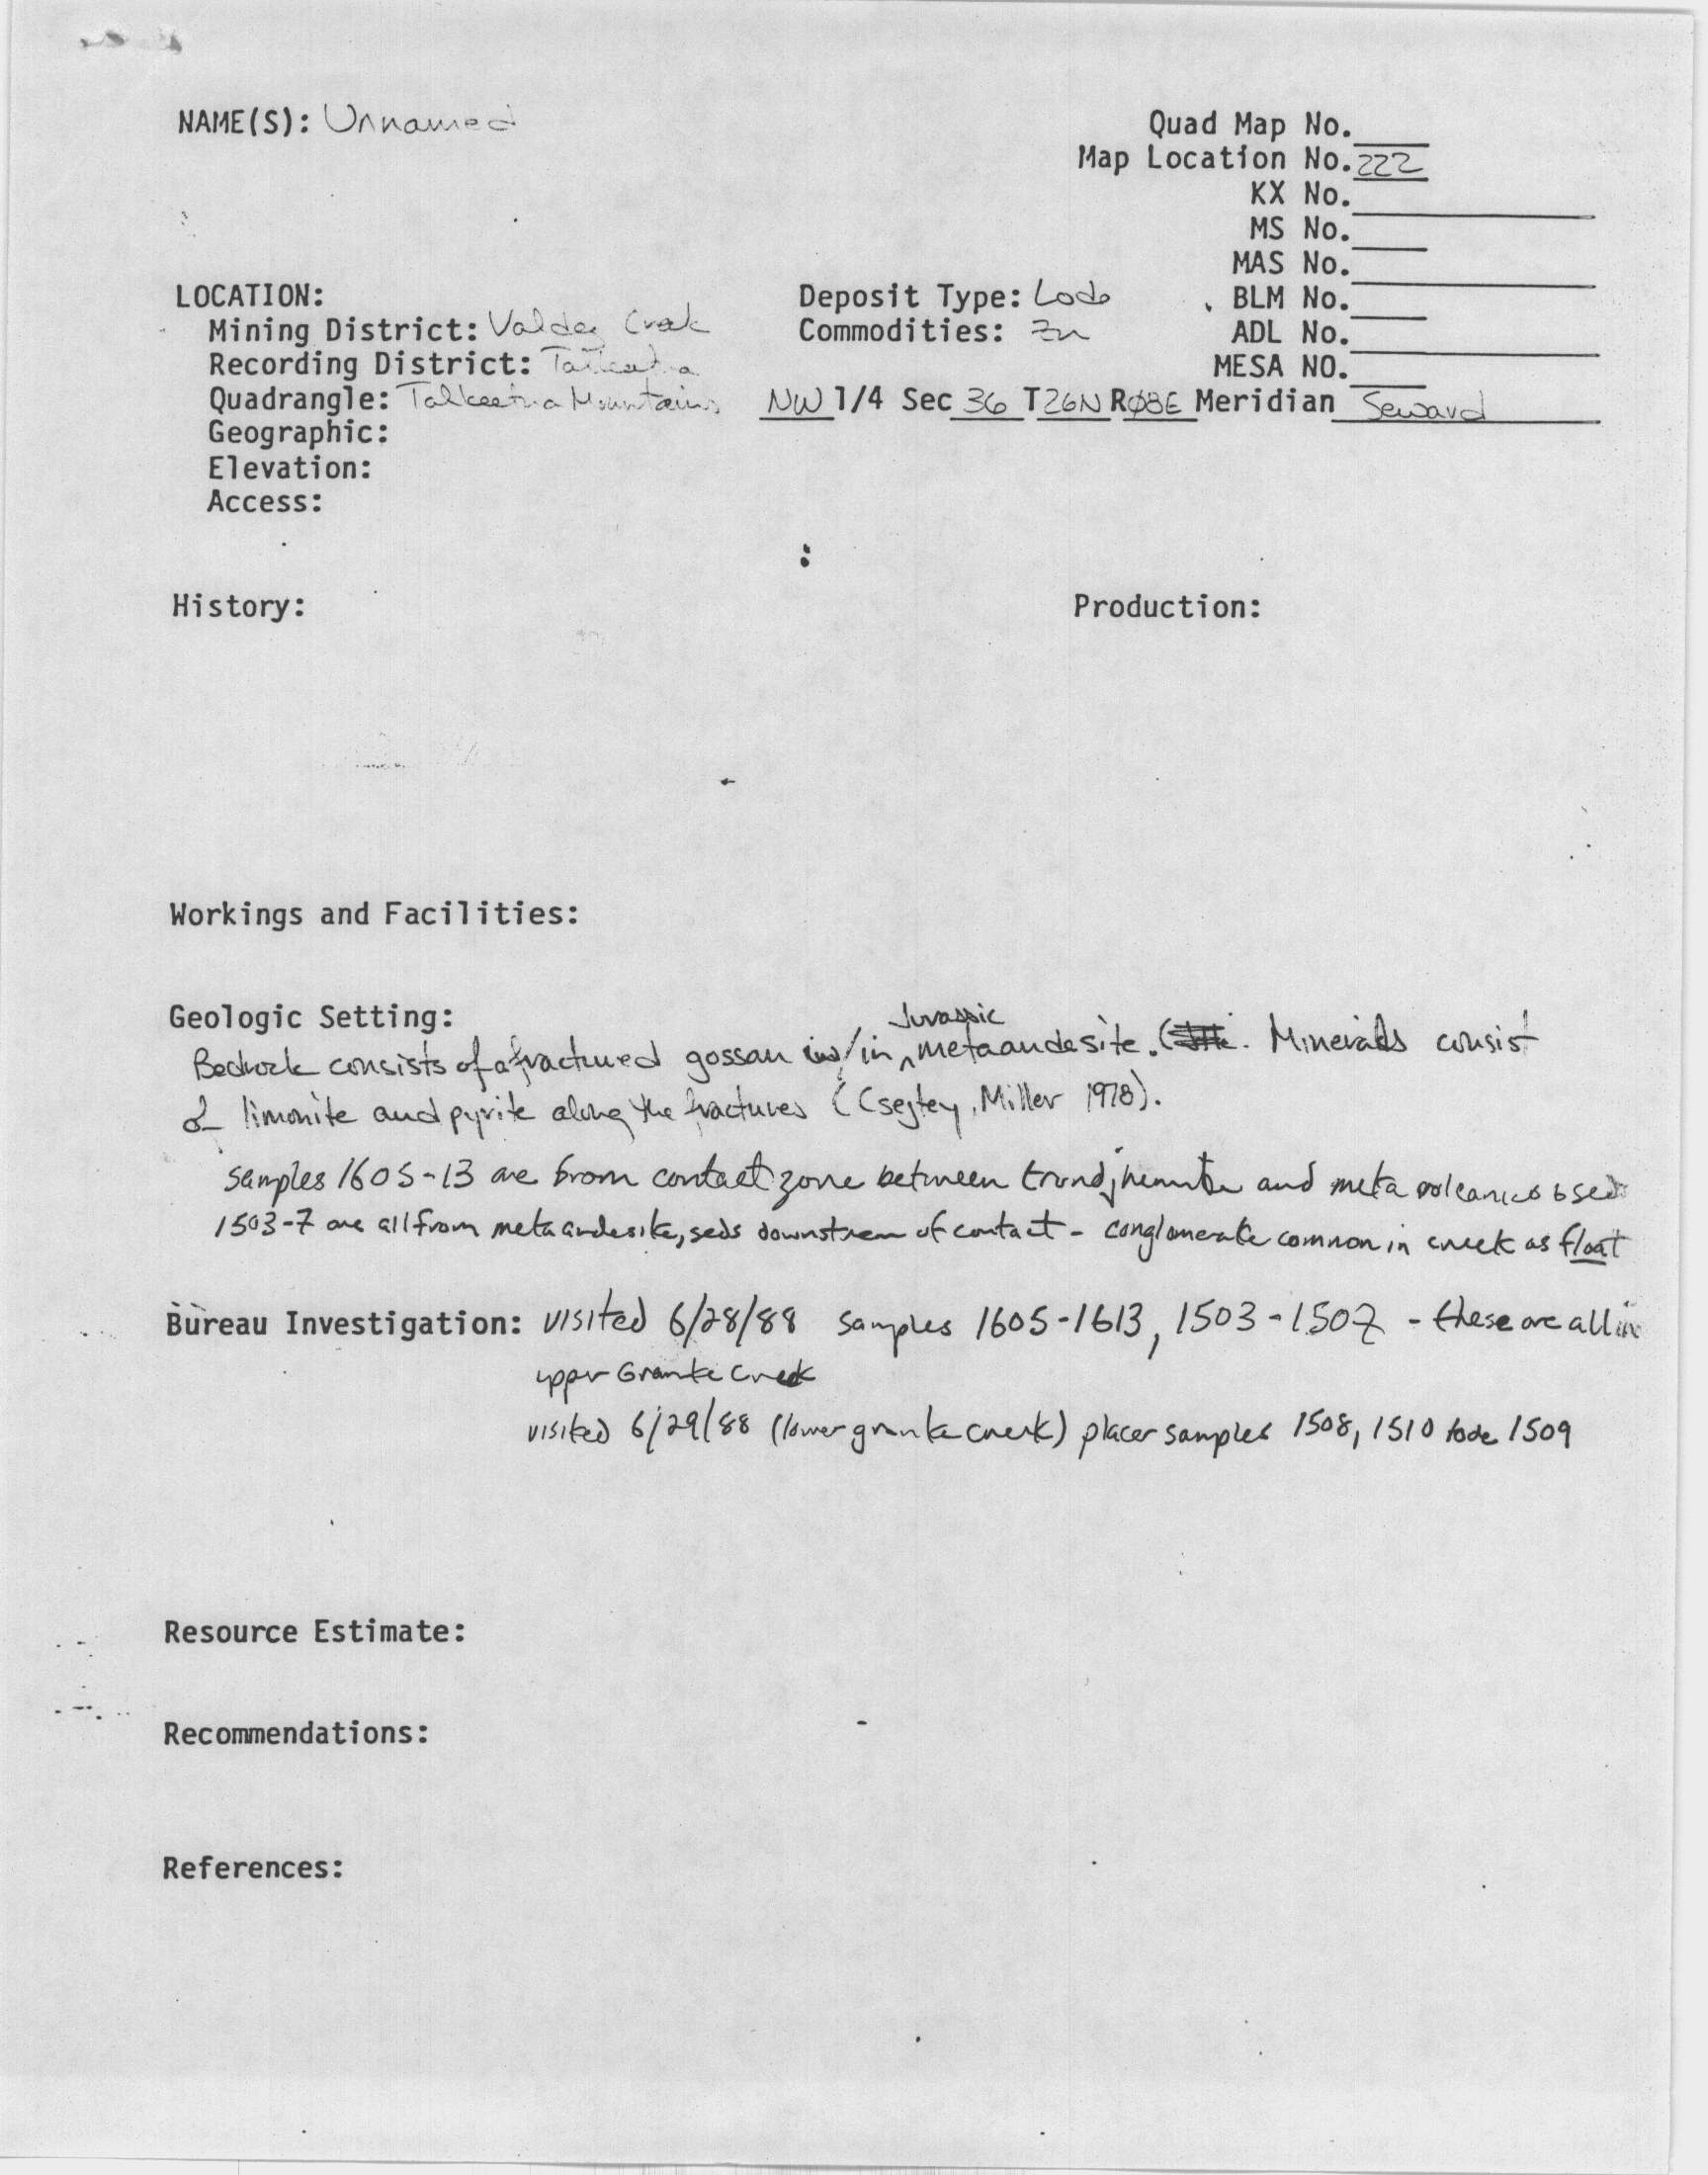 NAME(S): Unnamed
Quad Map No.
Map Location No. 222
KX No.
MS No.
MAS No.
LOCATION: Deposit Type: Lode BLM No.
Mining District: Valdez Creek Commodities: Zn ADL No.
Recording District: Talkeetna MESA NO.
Quadrangle: Talkeetna Mountains NW 1/4 Sec 36 T26N RØ8E Meridian Seward
Geographic:
Elevation:
Access:
History: Production:
Workings and Facilities:
Geologic Setting:
Jurassic
Bedrock consists of a fractured gossan w/in ^ metaandesite. Minerals consist
of limonite and pyrite along the fractures (Csejtey, Miller 1978).
samples 1605-13 are from contact zone between trondjhemite and meta volcanics & seds
1503-7 are all from metaandesite, seds downstream of contact - conglomerate common in creek as float
Bureau Investigation: visited 6/28/88 samples 1605-1613, 1503-1507 - these are all in
upper Granite Creek
visited 6/29/88 (lower granite creek) placer samples 1508, 1510 lode 1509
Resource Estimate:
Recommendations:
References: